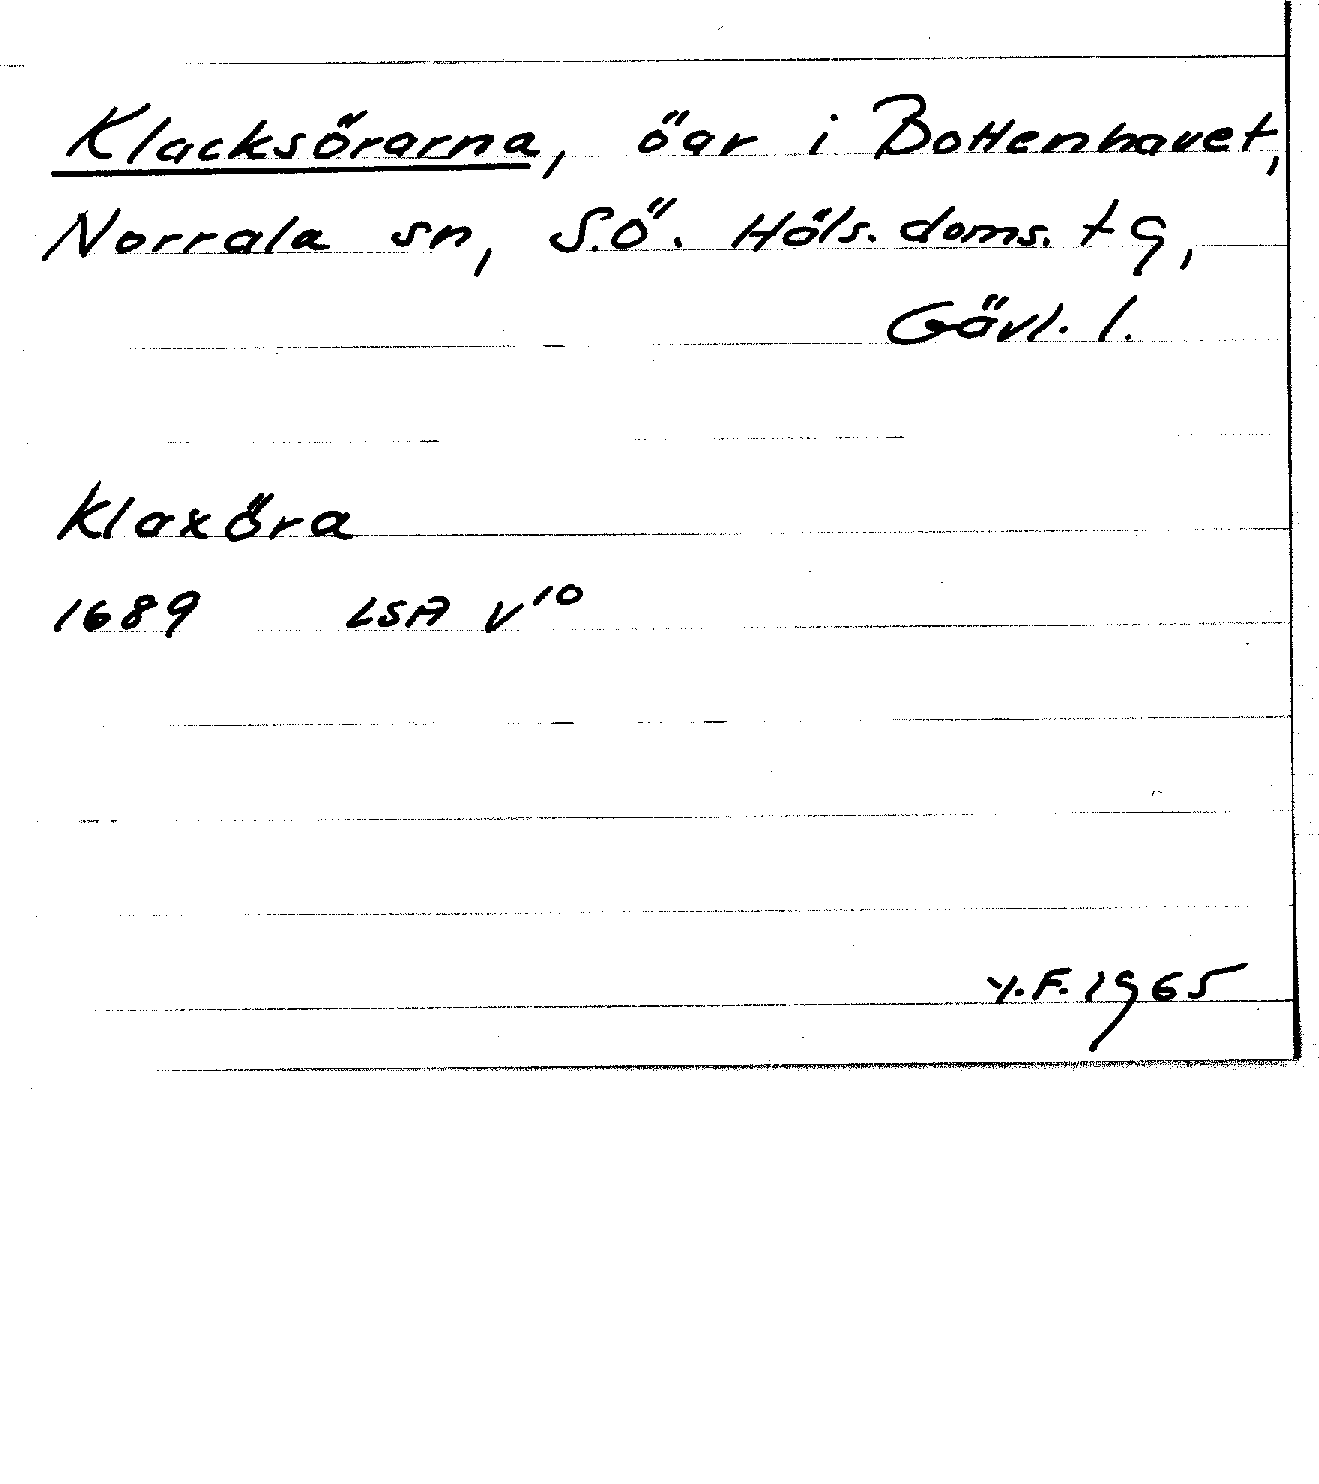 Klacksörarna, öar i Bottenhavet,
Norrala sn, S.Ö. Häls. doms. tg,
Gävl. l.
Klaxöra
1689 LSA V¹⁰
Y.F. 1965